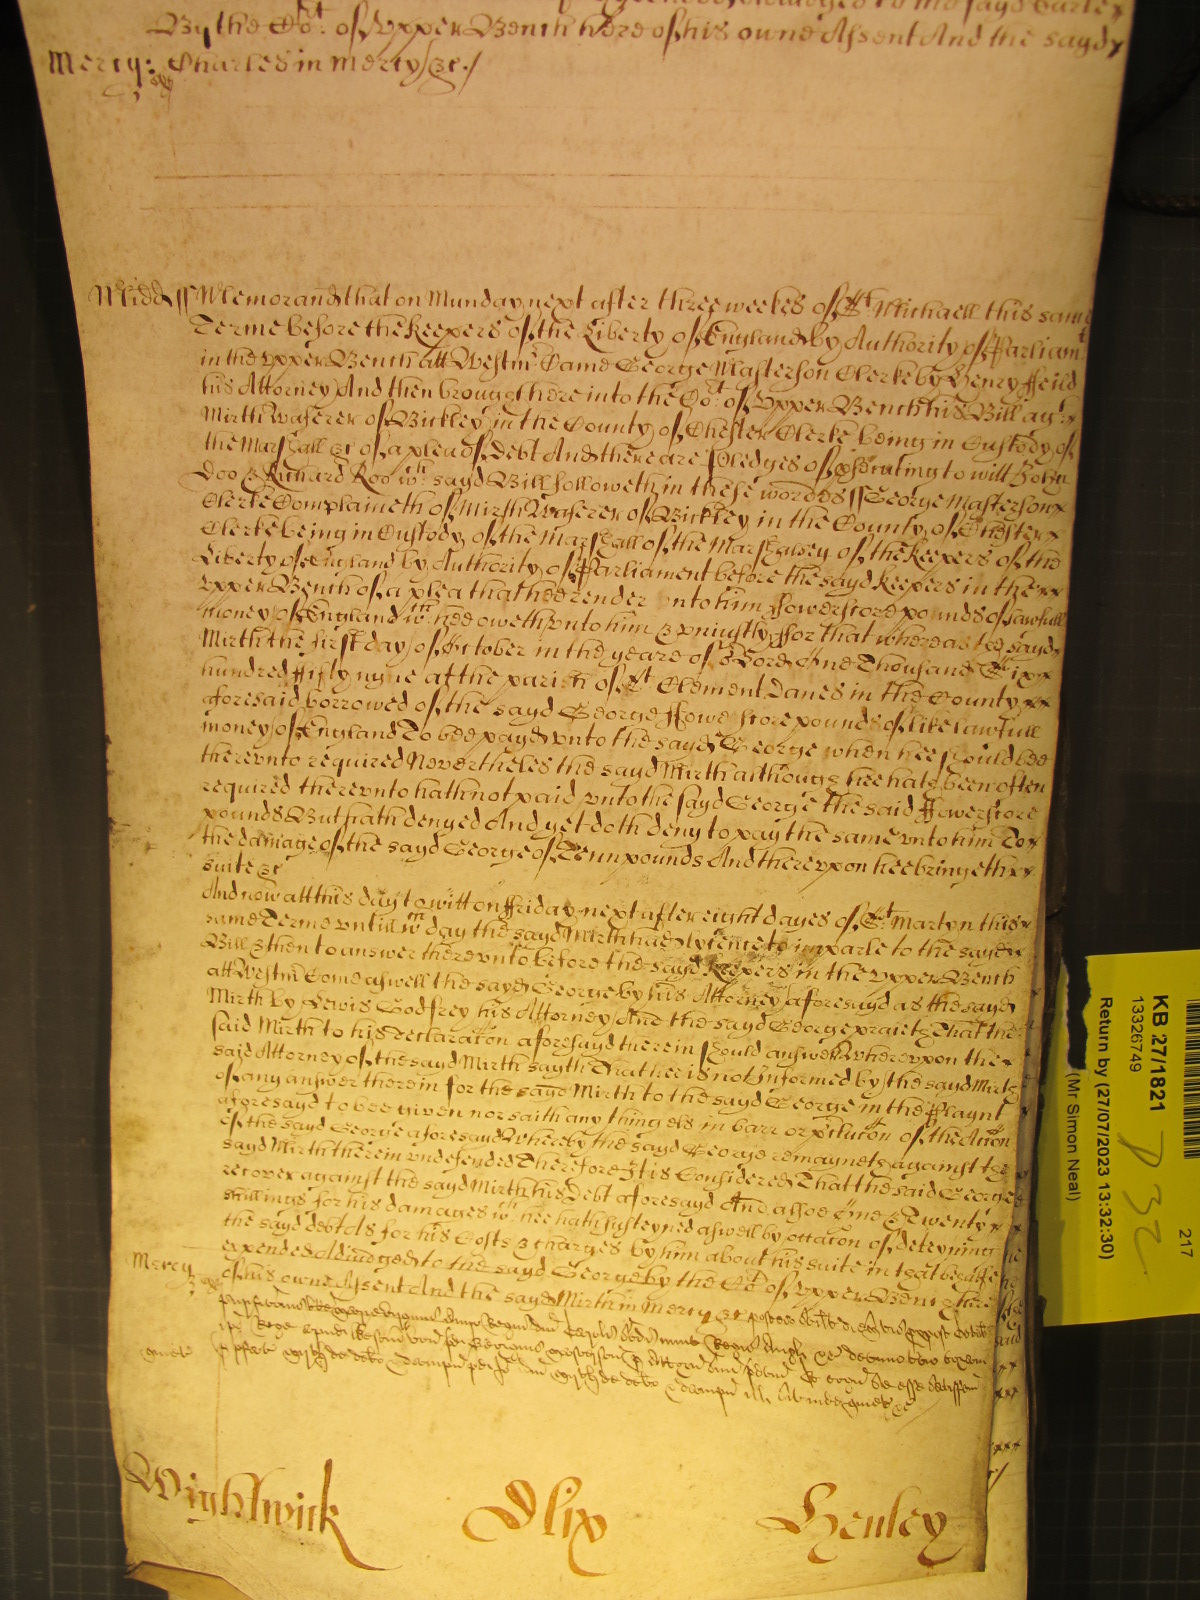 By the Cort. of Upper Bench here of his owne Assent And the sayd
Mercy: Charles in mercy &c./
Midd ss Memorand that on Munday next after three weekes of St Michaell this same
Terme before the Keepers of the Liberty of England by Authority of Parliamt
in the Upper Bench att Westmr Came George Masterson Clerke by Henry Feild
his Attorney And then brought here into the Cort. of Upper Bench his Bill agt.
Mirth Waferer of Bickley in the County of Chester Clerke being in Custody of
the Marshall &c of a plea of Debt And there are Pledges of p[ro]secuting to witt John
Doo & Richard Roo wch. sayd Bill followeth in these words ss George Masterson
Clerke Complaineth of Mirth Waferer of Bickley in the County of Chester
Clerke being in Custody of the Marshall of the Marshalsey of the Keepers of the
Liberty of England by Authority of Parliament before the sayd Keepers in the
Upper Bench of a plea that hee render unto him ffowerscore pounds of lawfull
money of England wch. hee oweth unto him & uniustly ffor that whereas the sayd
Mirth the first day of October in the yeare of or Lord One Thousand Six
hundred ffifty nyne att the parish of St Clement Danes in the County
aforesaid borrowed of the sayd George ffowerscore pounds of like lawfull
money of England To bee payd unto the sayd George when hee should bee
thereunto required Nevertheles the sayd Mirth although hee hath been often
required thereunto hath not paid unto the sayd George the said ffowerscore
pounds But hath denyed And yet doth deny to pay the same unto him To
the damage of the sayd George of Tenn pounds And thereupon hee bringeth
suite &c
And now att this day to witt on ffriday next after eight dayes of St. Martyn this
same Terme untill wch day the sayd Mirth had lycence to imparle to the sayd
Bill & then to answer thereunto before the sayd Keepers in the Upper Bench
att Westmr Come aswell the sayd George by his Attorney aforesayd as the sayd
Mirth by Lewis Godfrey his Attorney And the sayd George praieth That the
said Mirth to his declaraton aforesayd therein should answer Whereupon the
said Attorney of the sayd Mirth sayth That hee is not Informed by the sayd Mirth
of any answer therein for the same Mirth to the sayd George in the Playnt
aforesayd to bee given nor saith any thing els in barr or p[re]clusion of the Acton
of the sayd George aforesayd Whereby the sayd George remayneth against the
sayd Mirth therein undefended Therefore It is Considered That the said George
recover against the sayd Mirth his Debt aforesayd And alsoe One & Twenty
shillings for his damages wch. hee hath susteyned aswell by occation of deteyning
the sayd debt As for his Costs & charges by him about his suite in that behalfe
expended Adiudged to the sayd George by the Cort of Upper Bench here
Mercy of his owne Assent And the sayd Mirth in Mercy &c
Wightwick Olix Henley
KB 27/1821
13326749
Return by (27/07/2023 13:32:30)
(Mr Simon Neal)
217